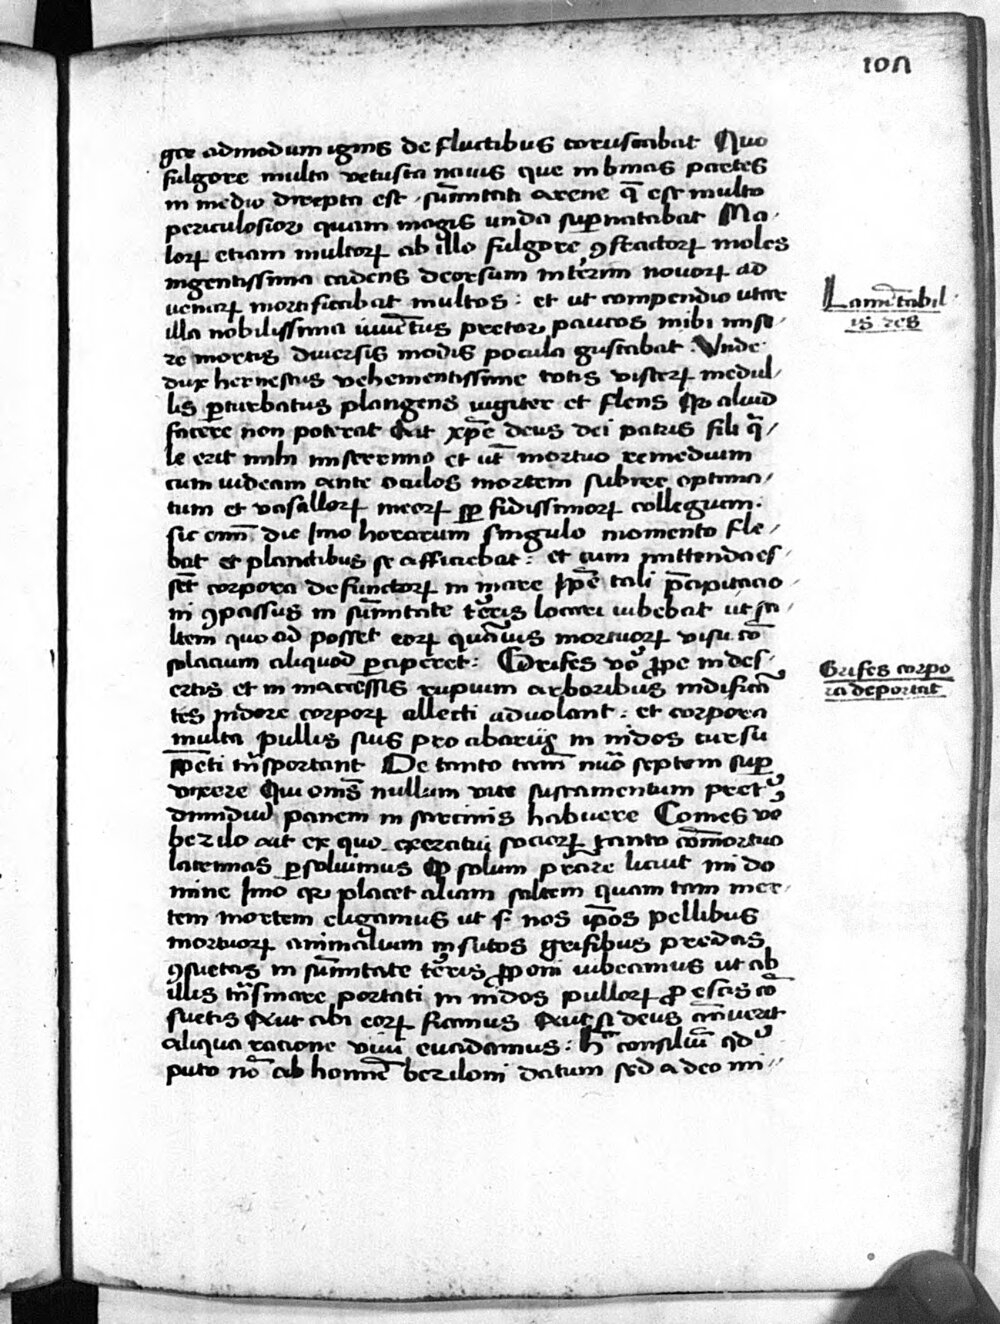 107
gre admodum ignis de fluctibus coruscabat Quo
fulgore multa vetusta nauis que in binas partes
in medio direpta est · su̅mitati arene q̅ est multo
periculosior quam magis unda supernatabat Ma/
lorꝝ etiam multorꝝ ab illo fulgore ꝯfractorꝝ moles
ingentissima cadens deorsum interim nouorꝝ ad
uenarꝝ mortificabat multos : et ut compendio utar
illa nobilissima iuue̅tus preter paucos mihi mise/
re mortis diuersis modis pocula gustabat · Vnde
dux hernestus vehementissime totis viscerꝝ medul/
lis ꝑturbatus plangens iugiter et flens qꝛ aliud
facere non poterat Ait xp̅e deus dei patris fili q̅/
le erit mihi miserrimo et ut̅ mortuo remedium
cum videam ante oculos mortem subire optima/
tum et vasallorꝝ meorꝝ sꝑ fidissimorꝝ collegium ·
sic eni̅ die Imo horarum singulo momento fle/
bat et planctibus se afficiebat : et cum mittenda es/
se̅t corpora defunctorꝝ in mare ip̅e tali p̅cipitacio/
ni ꝯpassus in su̅mitate te̅ris locari iubebat ut sa/
ltem quoad posset eorꝝ qua̅uis mortuorꝝ visu co̅
solacium aliquod ꝑciperet : Grifes vo̅ ꝓpe in des/
ertis et in inaccessis rupium arboribus nidifica̅
tes nidore corporꝝ allecti aduolant : et corpora
multa pullis suis pro abariis in nidos cursu
ꝑpeti tr̅nsportant De tanto tam̅ nu̅o septem suꝑ
vixere Qui om̅s nullum vite sustamentum pret̾
dimidiu̅ panem in sarcinis habuere Comes vo̅
bezilo ait ex quo exeratui sociorꝝ tanto co̅mortuo
latennas ꝑsoluimus Qꝛ solum p̅rare licuit mi do
mine Imo qꝛ placet aliam saltem quam tam iner/
tem mortem eligamus ut s· nos ip̅os pellibus
mortuorꝝ animalium insutos grifibus predas
ꝯsuetas in su̅mitate te̅ris ꝓponi iubeamus ut ab
illis tr̅nsmare portati in nidos pullorꝝ ꝓ escis co̅
suetis Aut cibi eorꝝ fiamus Aut si deus a̅nuerit
aliqua ratione viui euadamus : h̅ consiliu̅ qd̾
puto no̅ ab homi̅e beziloni datum sed a deo mi/
Lame̅tabil
is res
Grifes corpo
ra deportat